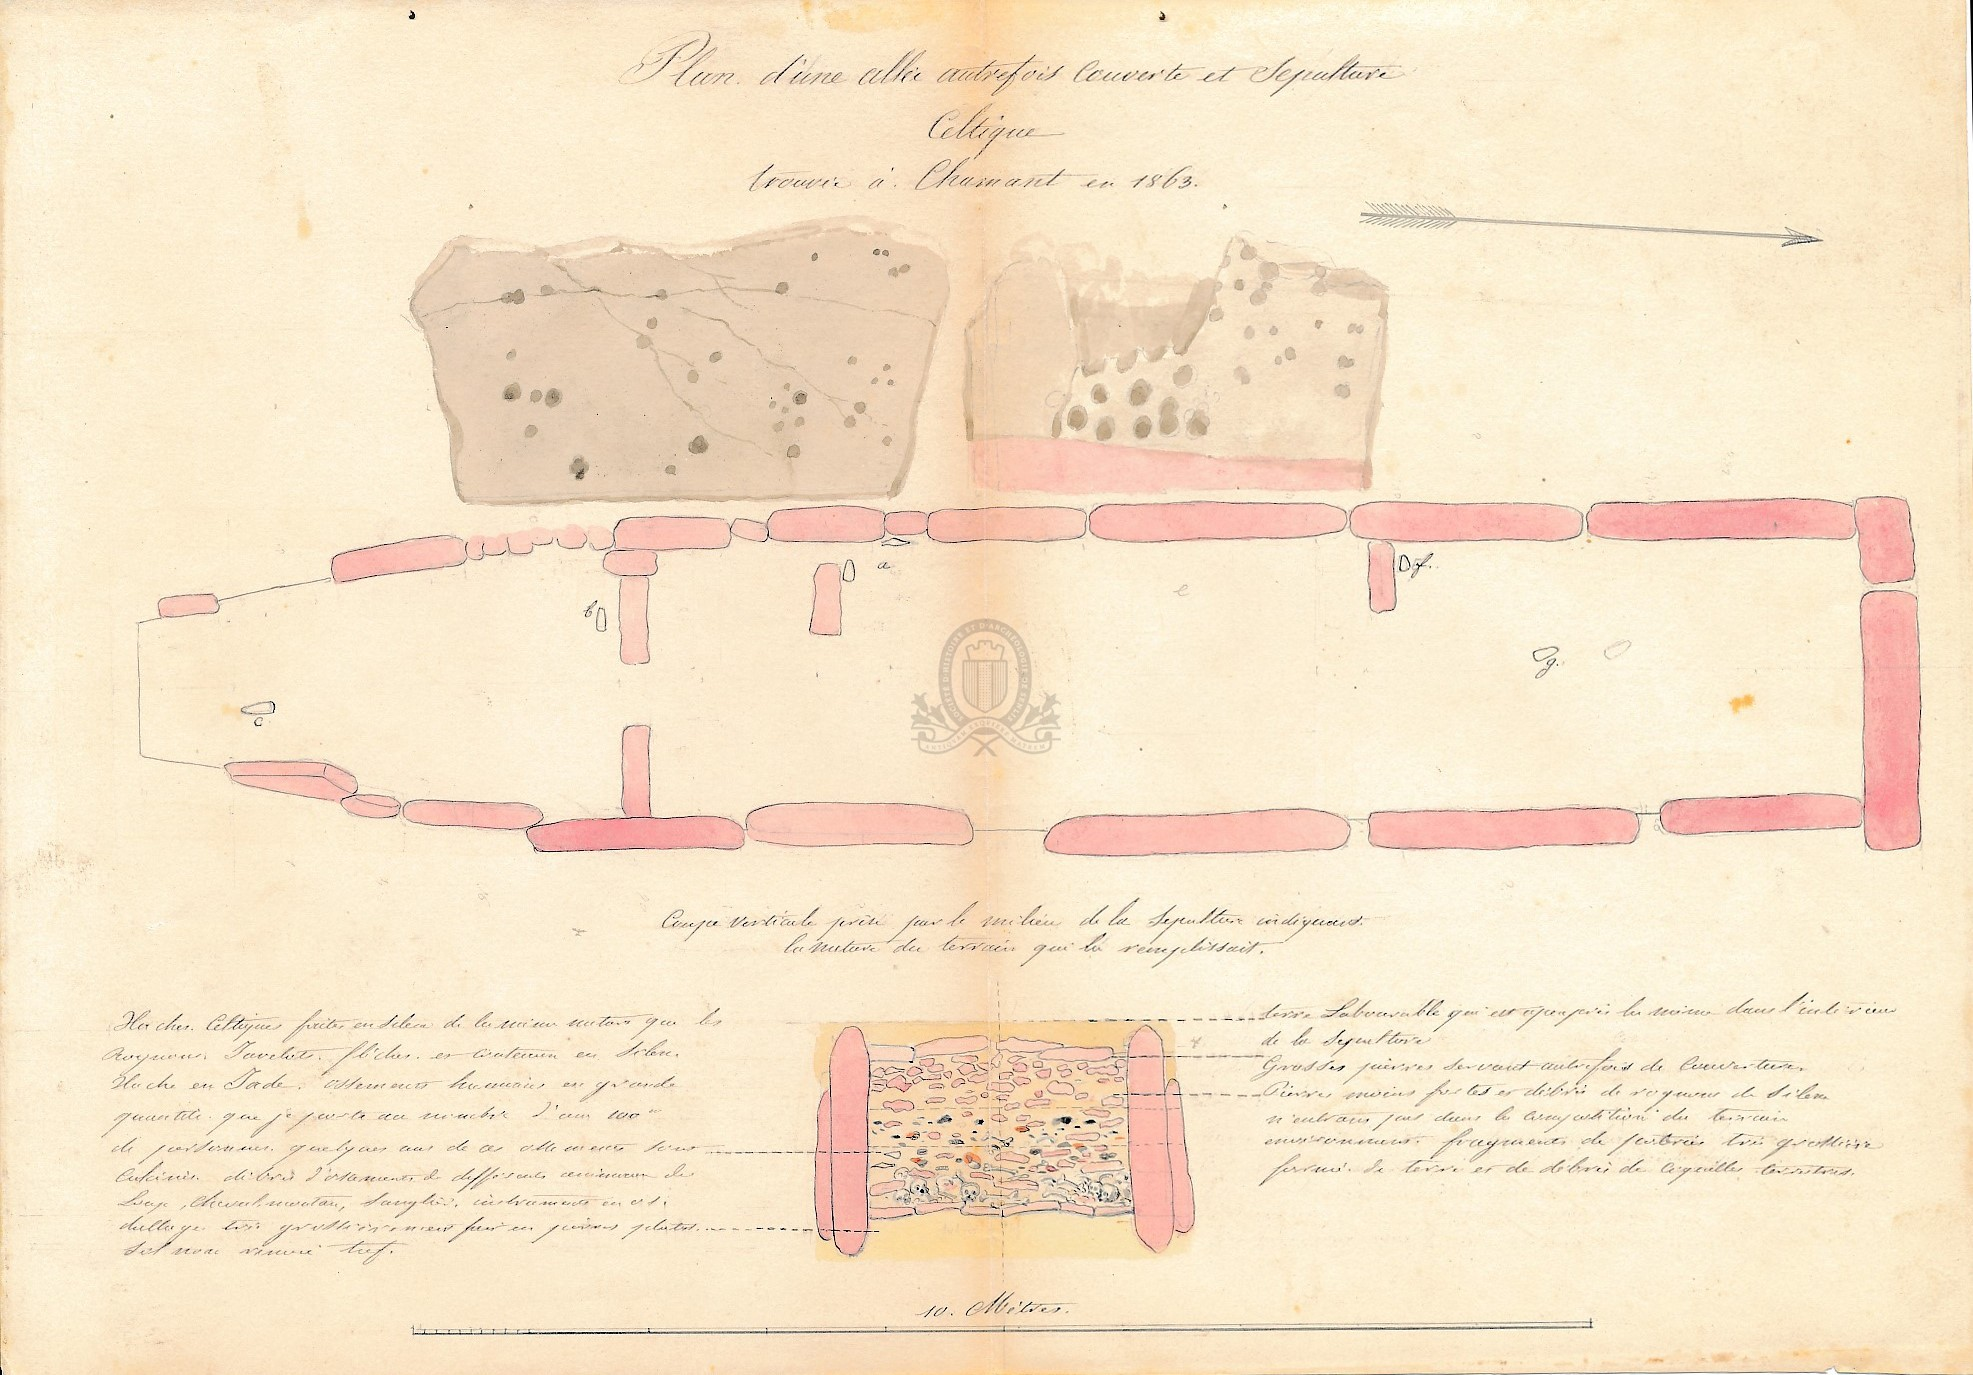 Plan d'une allée autrefois Couverte et Sépulture
Celtique
trouvée à Chamant en 1863.
a
b
f.
e
g.
c
Coupe verticale prise par le milieu de la Sépulture indiquant
la nature du terrain qui la remplissait.
Haches Celtiques faites en Silex de la même nature que les
Rognons. Javelots, flèches et couteaux en Silex.
Hache en Jade. ossements humains en grande
quantité que je porte au nombre d'au
de personnes quelques uns de ces ossements sont
Calcinés. débris d'ossements de différents animaux de
Loup, Cheval, mouton, Sanglier. instruments en os.
dallage très grossièrement fait en pierres plates.
Sol non remué tuf.
terre Labourable qui est à peu près la même dans l'intérieur
de la Sépulture
Grosses pierres servant autrefois de Couverture
Pierres moins fortes et débris de rognons de Silex
n'entrant pas dans la composition du terrain
environnant. fragments de poteries très grossières
formé de terre et de débris de coquilles terrestres.
10. Mètres.
SOCIÉTÉ D'HISTOIRE ET D'ARCHÉOLOGIE DE SENLIS